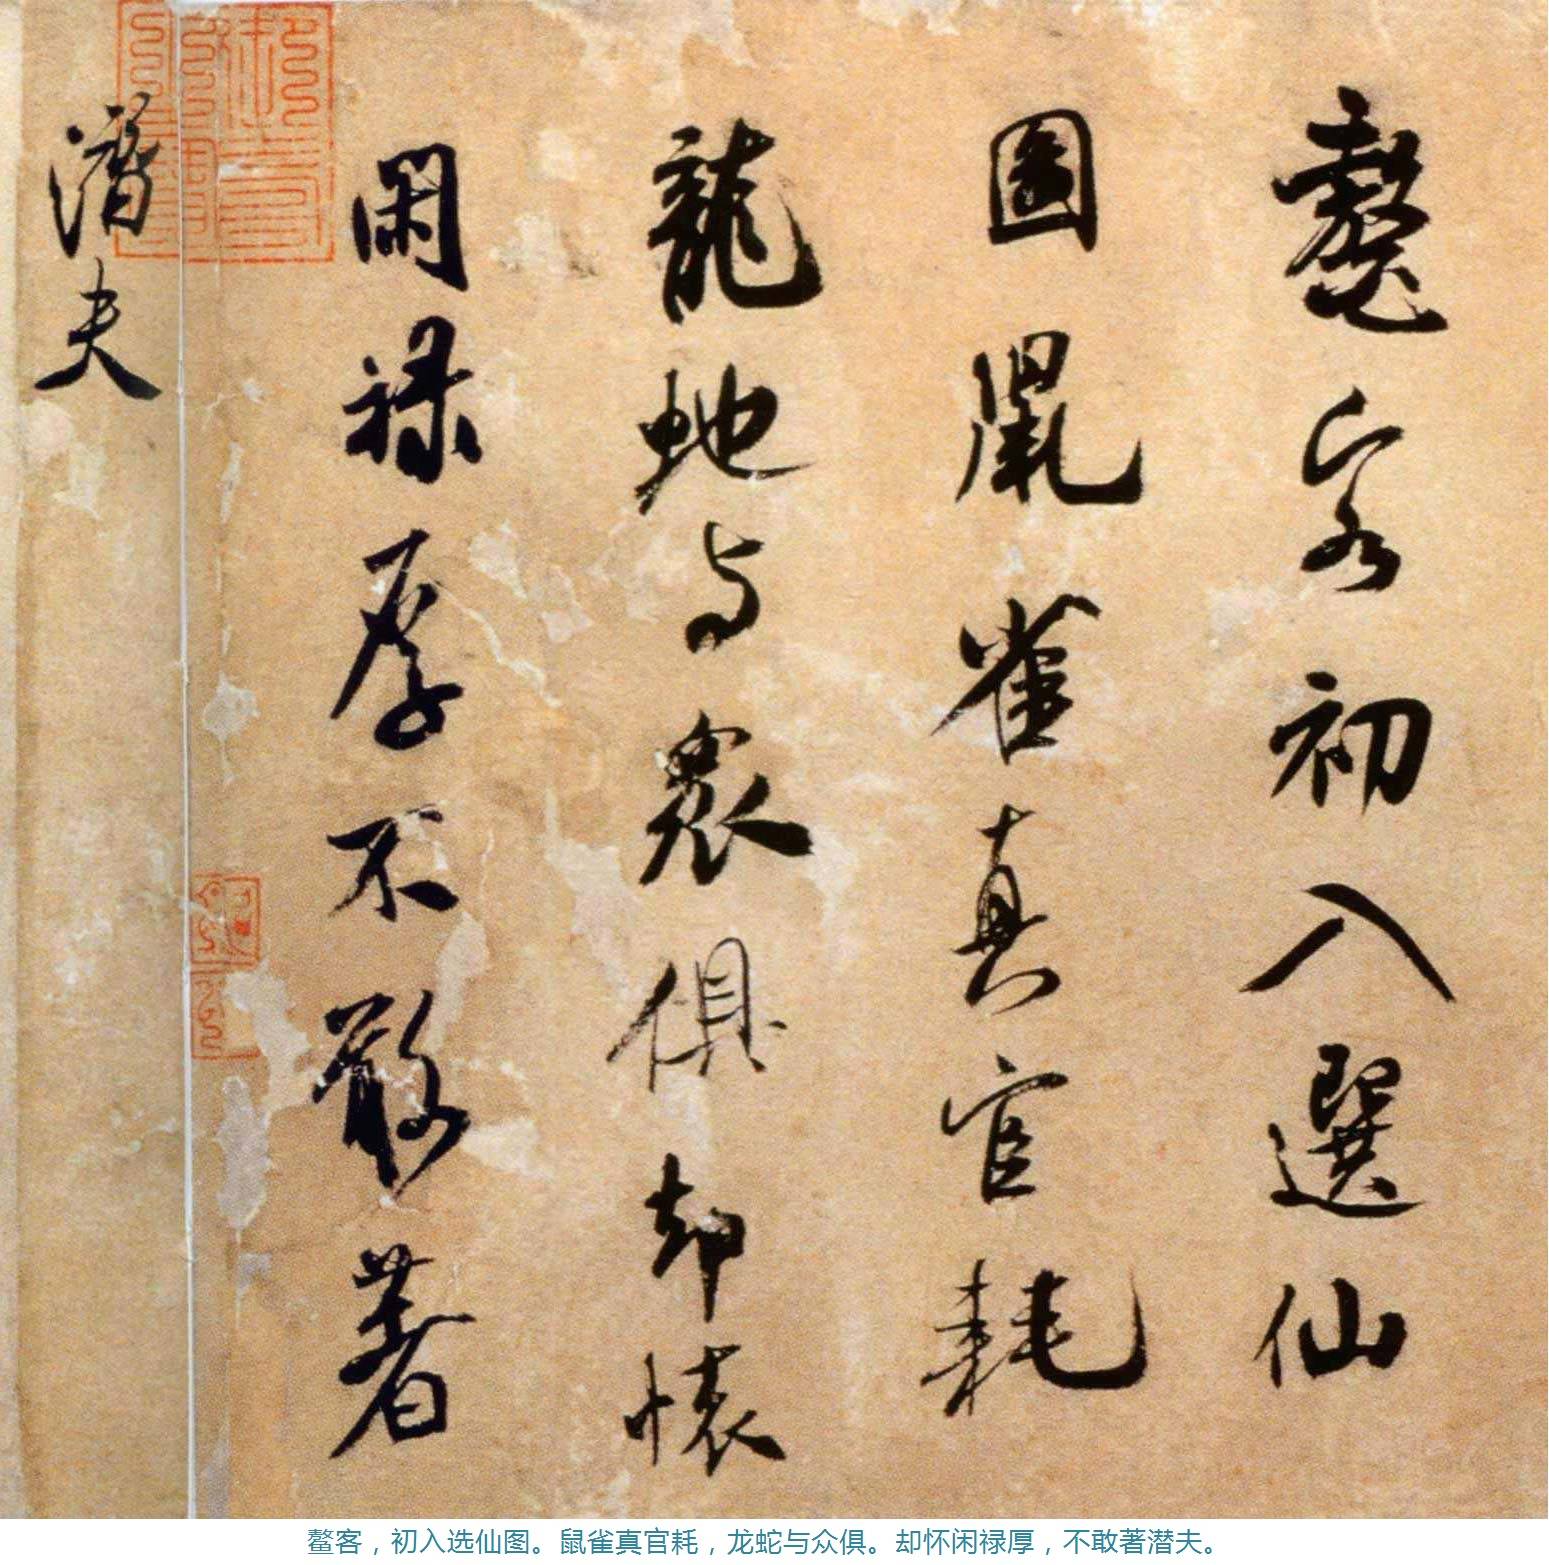 鼇客初入選仙
圖鼠雀真官耗
龍虵与眾俱却懷
閑禄厚不敢著
潛夫
鳌客，初入选仙图。鼠雀真官耗，龙蛇与众俱。却怀闲禄厚，不敢著潜夫。